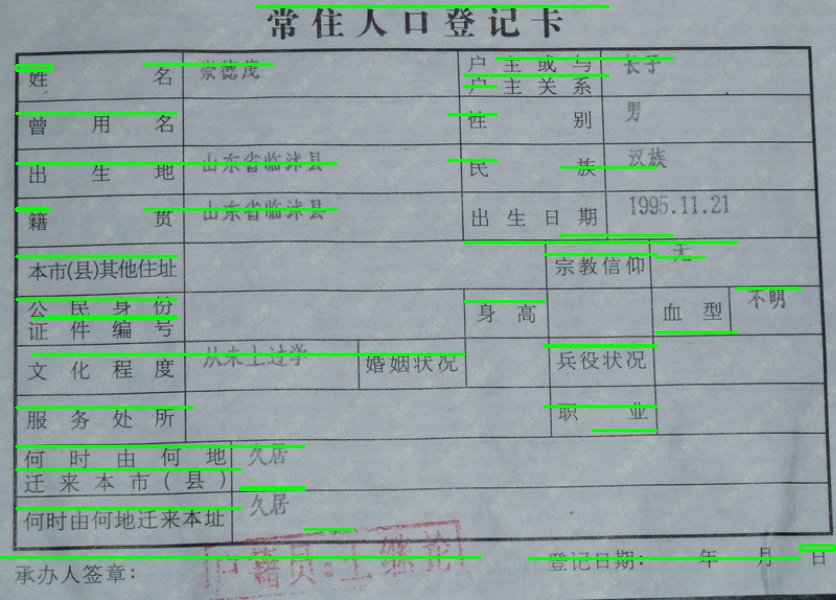 常住人口登记卡
姓名 崇德茂 户主或与户主关系 长子
曾用名 性别 男
出生地 山东省临沭县 民族 汉族
籍贯 山东省临沭县 出生日期 1995.11.21
本市(县)其他住址 宗教信仰 无
公民身份证件编号 身高 血型 不明
文化程度 从未上过学 婚姻状况 兵役状况
服务处所 职业
何时由何地迁来本市(县) 久居
何时由何地迁来本址 久居
承办人签章: 户籍员:王继论 登记日期: 年 月 日